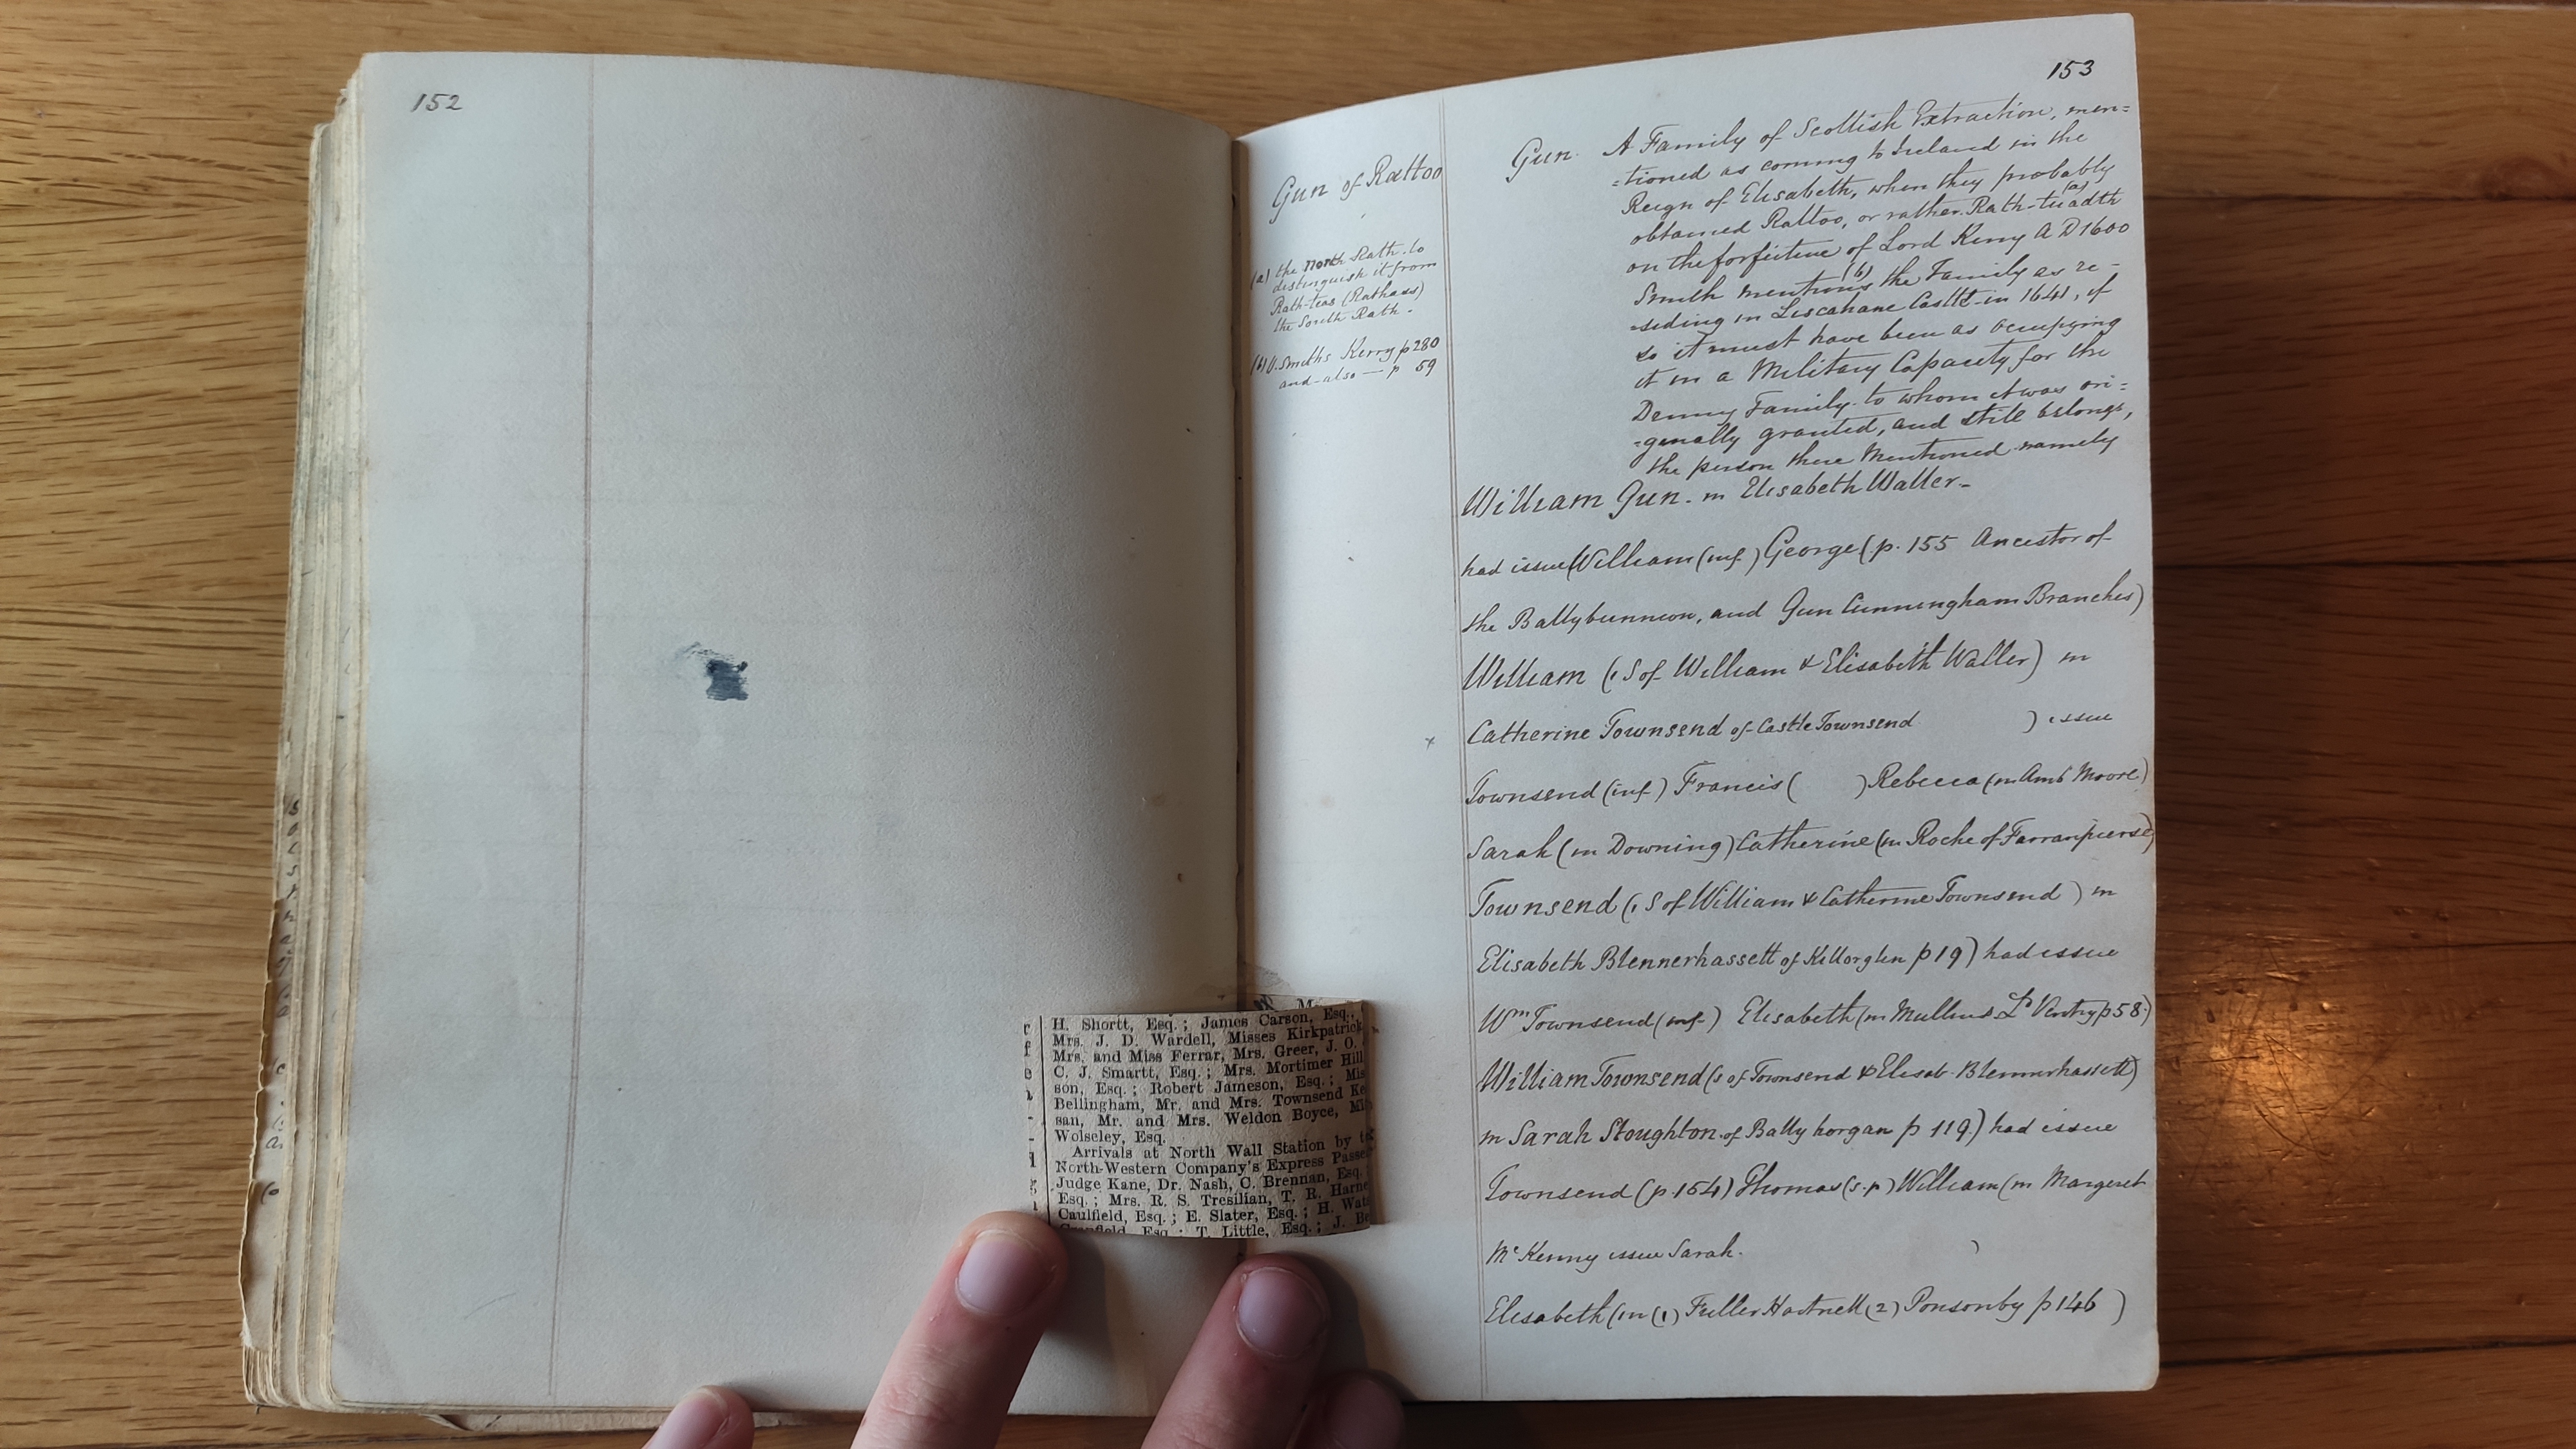 152
153
Gun of Rattoo
(a) the North Rath. to
distinguish it from
Rath-teas (Rathass)
the South Rath.
(b) V. Smiths Kerry p 280
and also — p 59
Gun. A Family of Scottish Extraction, men=
=tioned as coming to Ireland in the
Reign of Elisabeth, when they probably
obtained Rattoo, or rather Rath-tuadth (a)
on the forfeiture of Lord Kerry A D 1600
Smith mentions (b) the Family as re-
-siding in Liscahane Castle in 1641, if
so it must have been as occupying
it in a Military Capacity for the
Denny Family to whom it was ori=
=ginally granted, and still belongs,
the person there Mentioned namely
William Gun. m Elisabeth Waller-
had issue (William (inf.) George (p. 155 Ancestor of
the Ballybunnion, and Gun Cunningham Branches)
William (1 S of William & Elisabeth Waller) m
x Catherine Townsend of Castle Townsend ) issue
Townsend (inf.) Francis ( ) Rebecca (m Ambe Moore)
Sarah (m Downing) Catherine (m Roche of Farranpierse)
Townsend (1 S of William & Catherine Townsend ) m
Elisabeth Blennerhassett of Killorglin p 19) had issue
Wm Townsend (inf.) Elisabeth (m Mullins Ld Ventry p 58)
William Townsend (s of Townsend & Elisab. Blennerhassett)
m Sarah Stoughton of Bally horgan p 119.) had issue
Townsend (p. 154) Thomas (s.p) William (m Margeret
Mc Kenny issue Sarah. )
Elisabeth (m (1) Fuller Hartnell (2) Ponsonby p 146 )
H. Shortt, Esq.; James Carson, Esq.,
Mrs. J. D. Wardell, Misses Kirkpatrick
Mrs. and Miss Ferrar, Mrs. Greer, J. O.
C. J. Smartt, Esq.; Mrs. Mortimer Hill
son, Esq.; Robert Jameson, Esq.; Mis
Bellingham, Mr. and Mrs. Townsend Ke
san, Mr. and Mrs. Weldon Boyce, Mi
Wolseley, Esq.
Arrivals at North Wall Station by
North-Western Company's Express Passe
Judge Kane, Dr. Nash, C. Brennan, Esq.
Esq.; Mrs. R. S. Tresilian, T. R. Harne
Caulfield, Esq.; E. Slater, Esq.; H. Wat
Esq.; T. Little, Esq.; J. Be